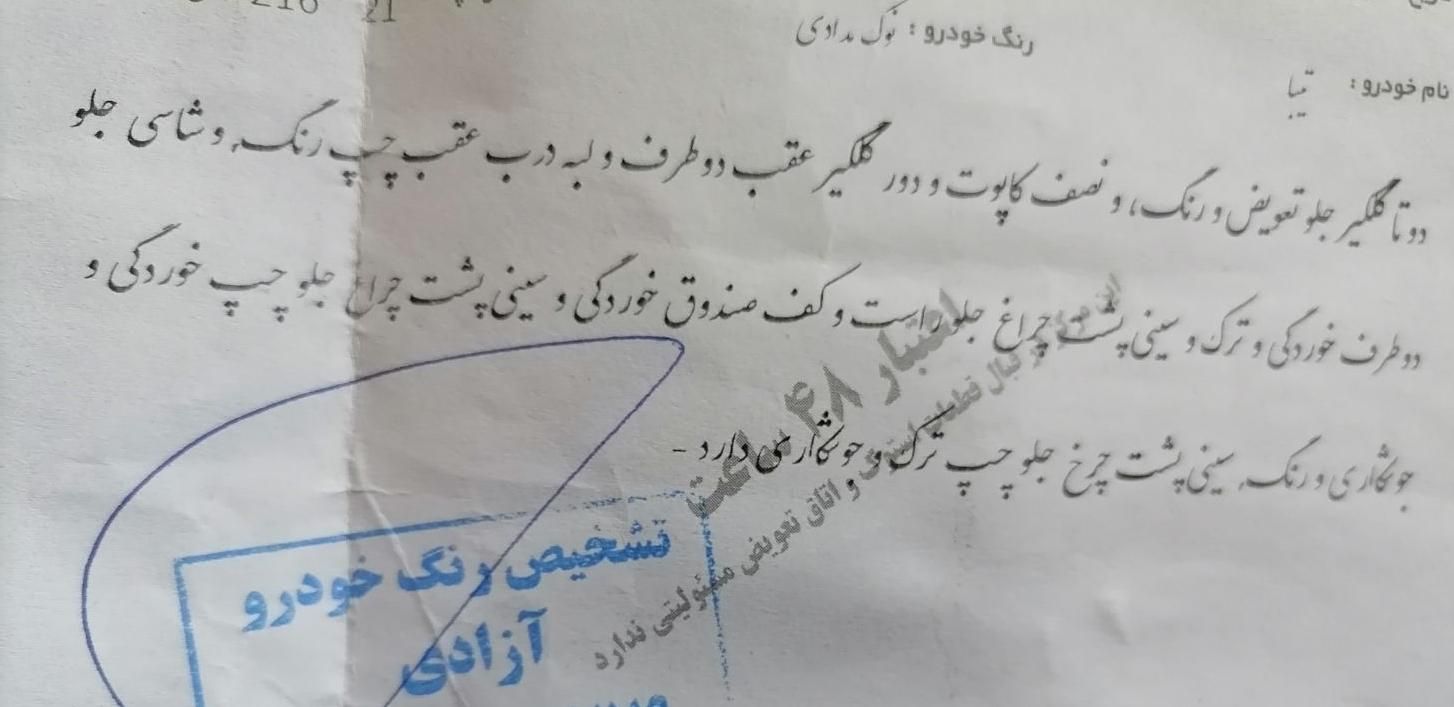 216 21
رنگ خودرو : نوک مدادی
نام خودرو : تیبا
دو تا گلگیر جلو تعویض و رنگ، و نصف کاپوت و دور گلگیر عقب دو طرف و لبه درب عقب چپ رنگ, و شاسی جلو
دو طرف خوردگی و ترک و سینی پشت چراغ جلو راست و کف صندوق خوردگی و سینی پشت چراغ جلو چپ خوردگی و
جوشکاری و رنگ, سینی پشت چرخ جلو چپ ترک و جوشکاری دارد -
اعتبار ۴۸ ساعت
قبال قطعات و اتاق تعویض مسئولیتی ندارد
تشخیص رنگ خودرو
آزادی